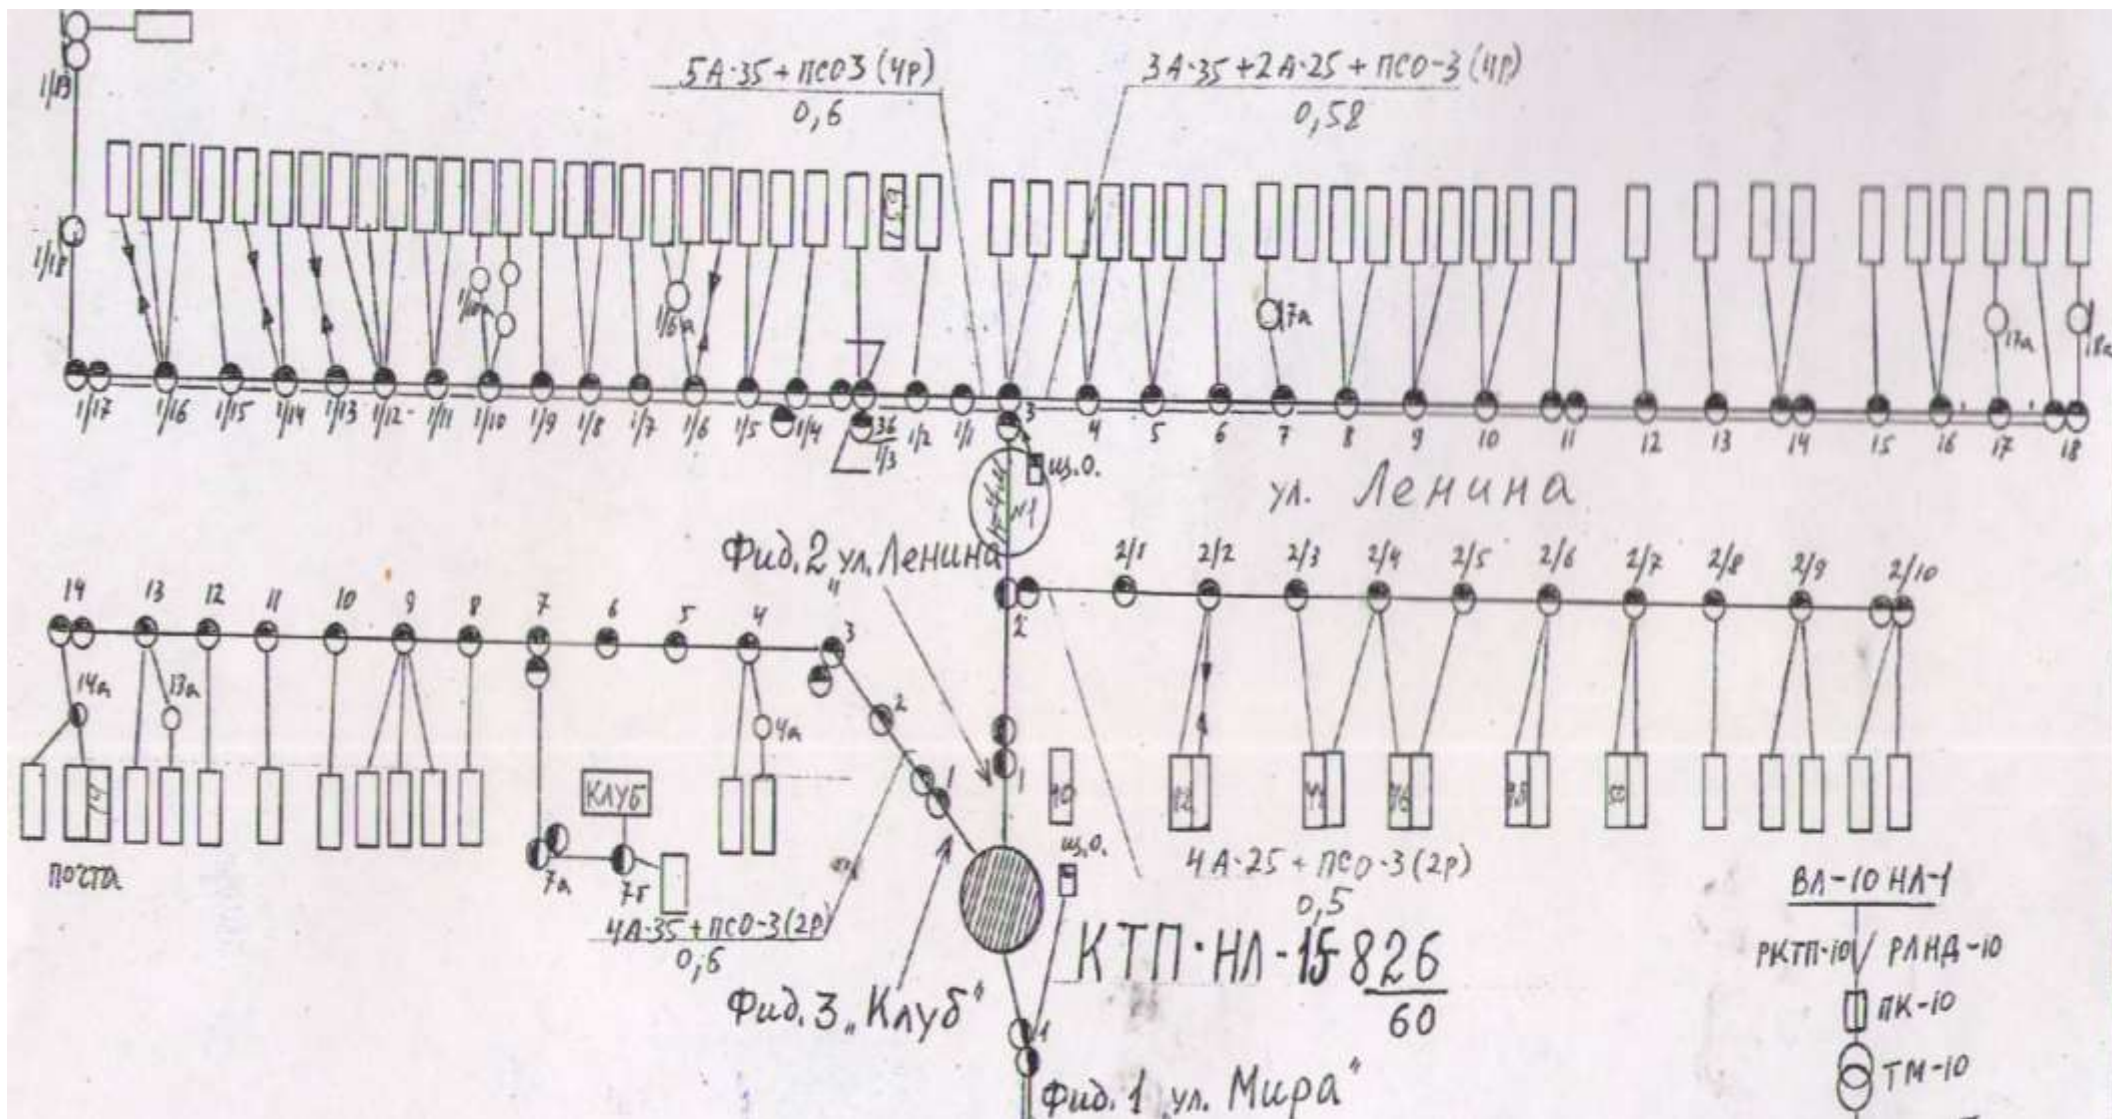 1/19
5А-35 + ПСО3 (4р)
0,6
3А-35 + 2А-25 + ПСО-3 (4р)
0,58
1/18
1/10а
1/6а
17а
17а
18а
1/17 1/16 1/15 1/14 1/13 1/12 1/11 1/10 1/9 1/8 1/7 1/6 1/5 1/4 36 1/3 1/2 1/1 3 4 5 6 7 8 9 10 11 12 13 14 15 16 17 18
щ.о.
№1
ул. Ленина
Фид. 2 ул. Ленина"
14 13 12 11 10 9 8 7 6 5 4 3
2 2/1 2/2 2/3 2/4 2/5 2/6 2/7 2/8 2/9 2/10
14а 13а 4а 2
1 1
КЛУБ
40 42 44 46 48 50
почта
7а 7б
щ.о.
4А-35 + ПСО-3 (2р)
0,6
4А-25 + ПСО-3 (2р)
0,5
КТП-НЛ-15 826
60
Фид. 3 „Клуб"
1
Фид. 1 „ул. Мира"
ВЛ-10 НЛ-1
РКТП-10 РЛНД-10
ПК-10
ТМ-10